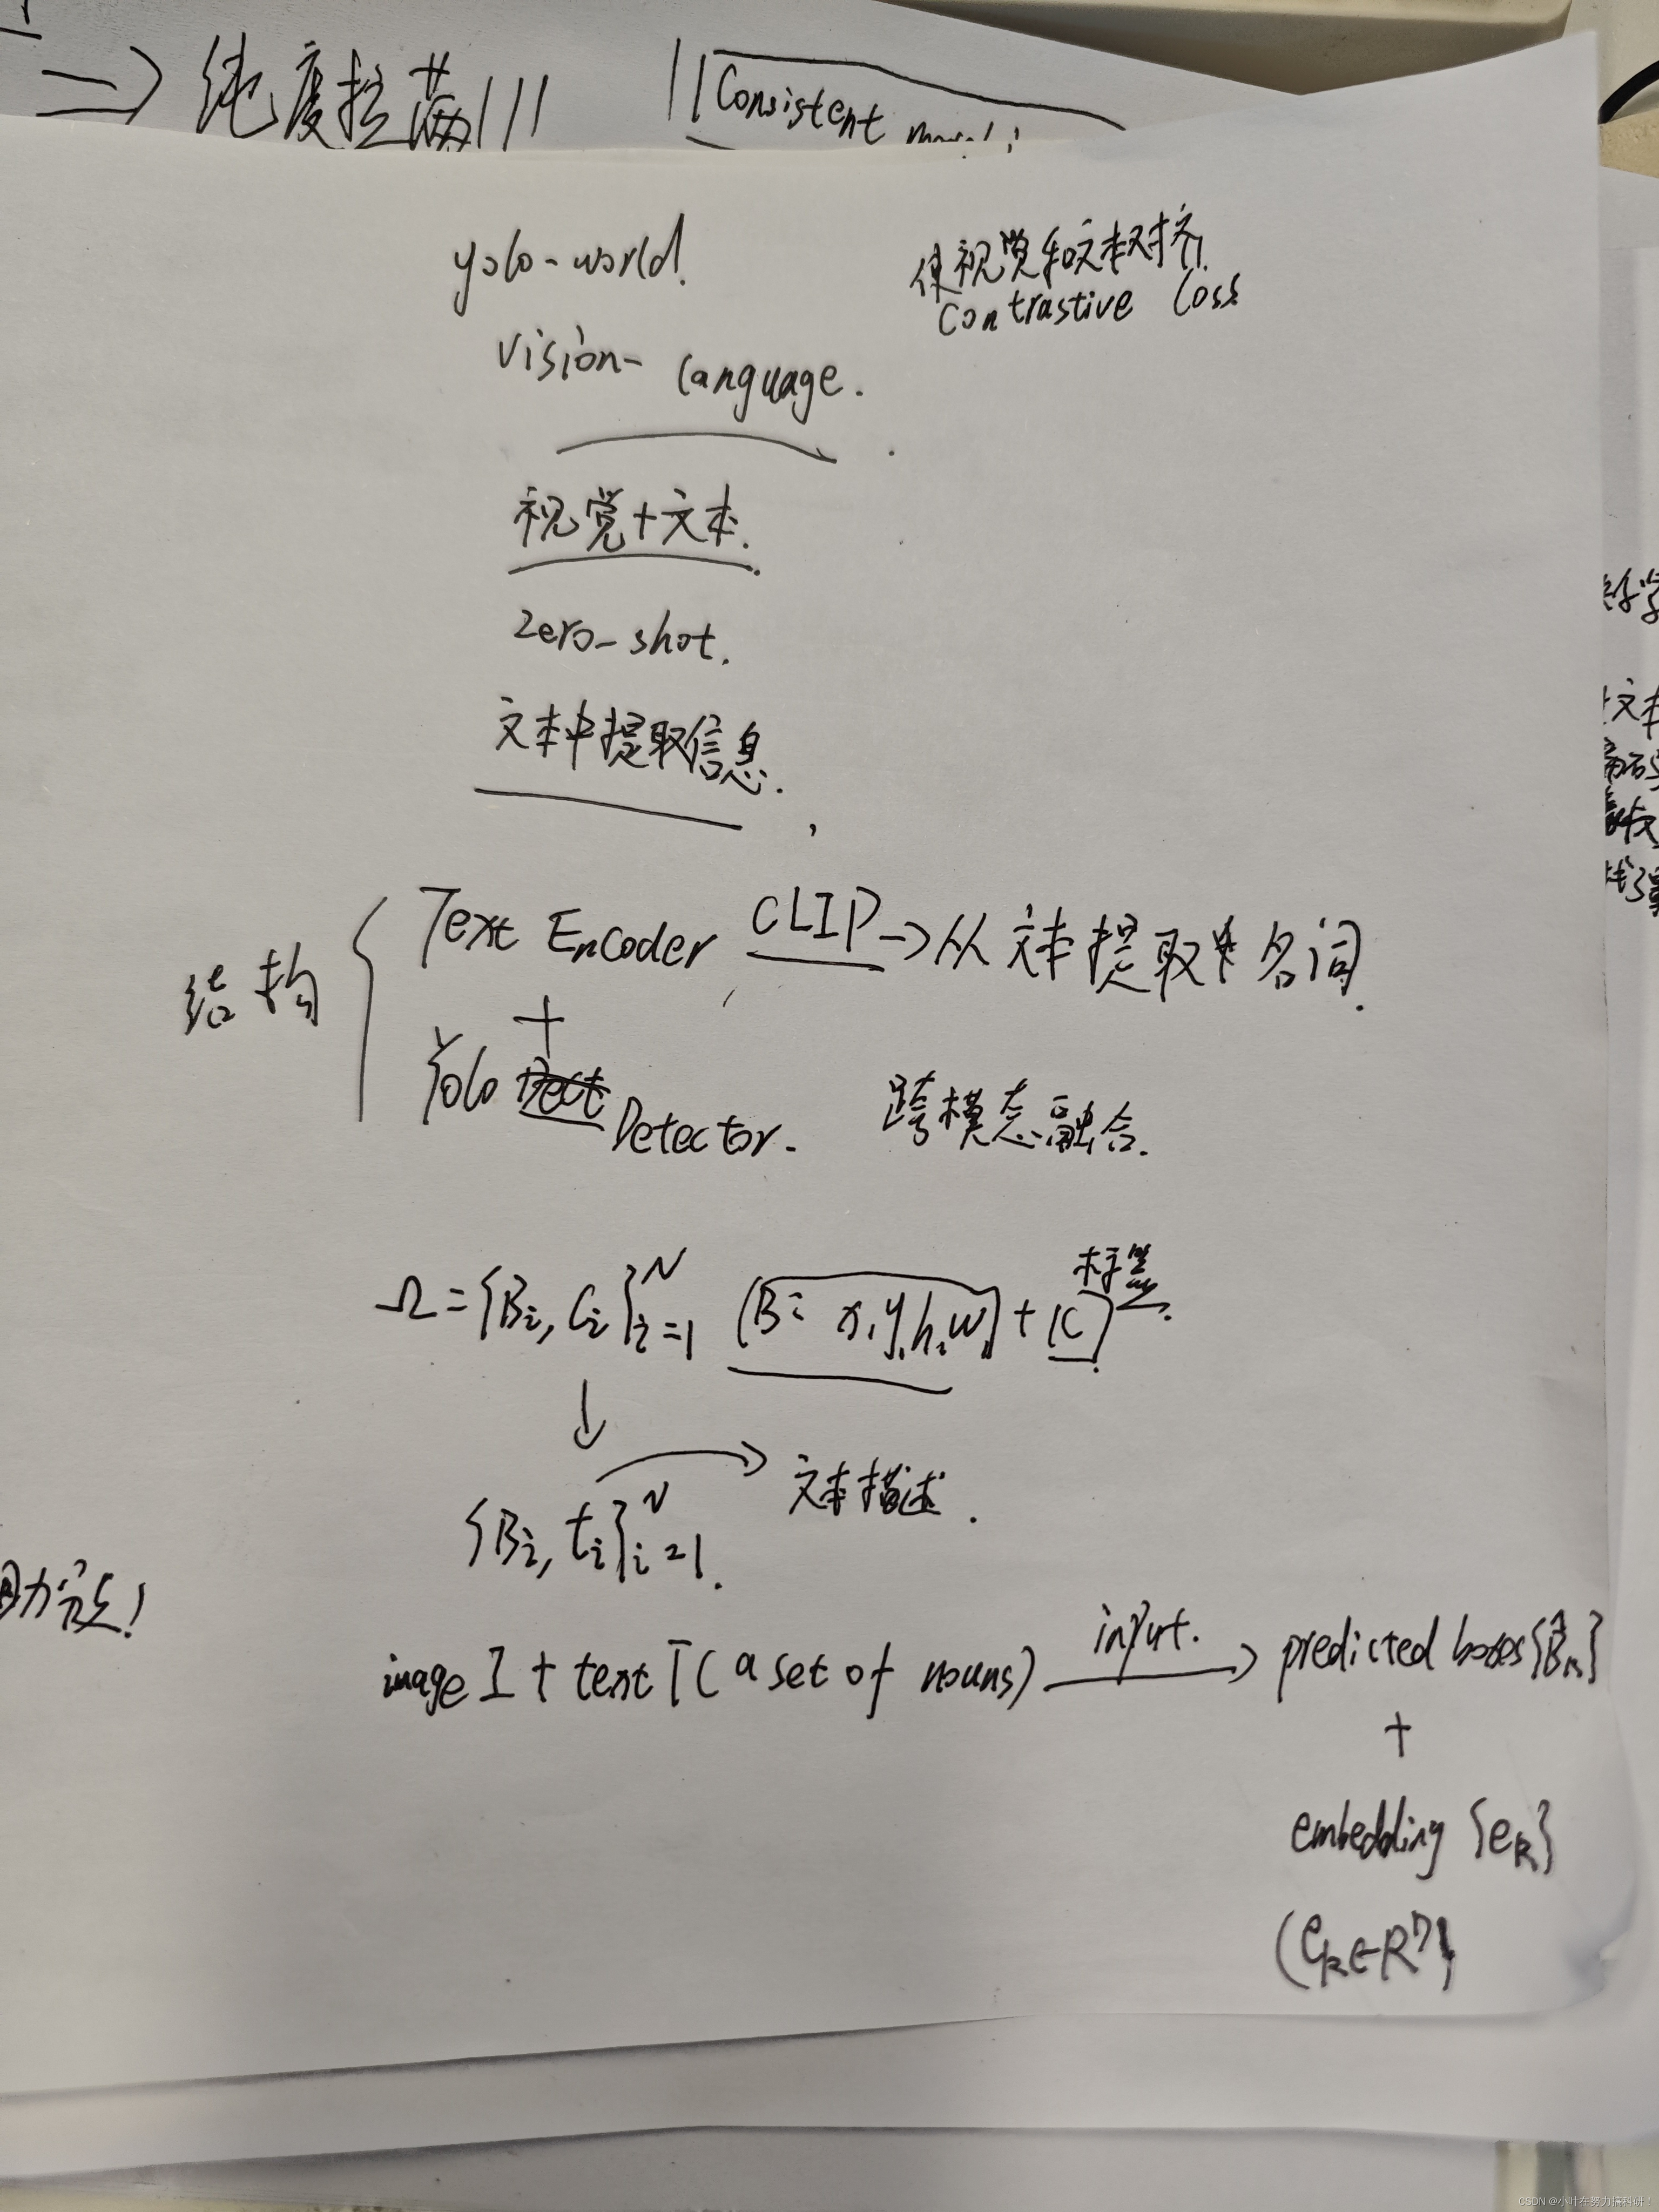 ⇒ 纯度拉满!!!
Consistent
yolo-world.
使视觉和文本对齐
Contrastive Loss
vision-language.
视觉+文本.
zero-shot.
文本中提取信息.
结构
Text Encoder CLIP → 从文本提取 名词.
+
Yolo Detector.
跨模态融合.
标签
Ω = {Bi, Ci}ᴺi=1 (B: x,y,h,w) + (C)
↓
{Bi, ti}ᴺi=1. → 文本描述.
image I + text T (a set of nouns) input. → predicted boxes {B̂k}
+
embedding {ek}
(ek∈Rᴰ)
CSDN @小叶在努力搞科研!